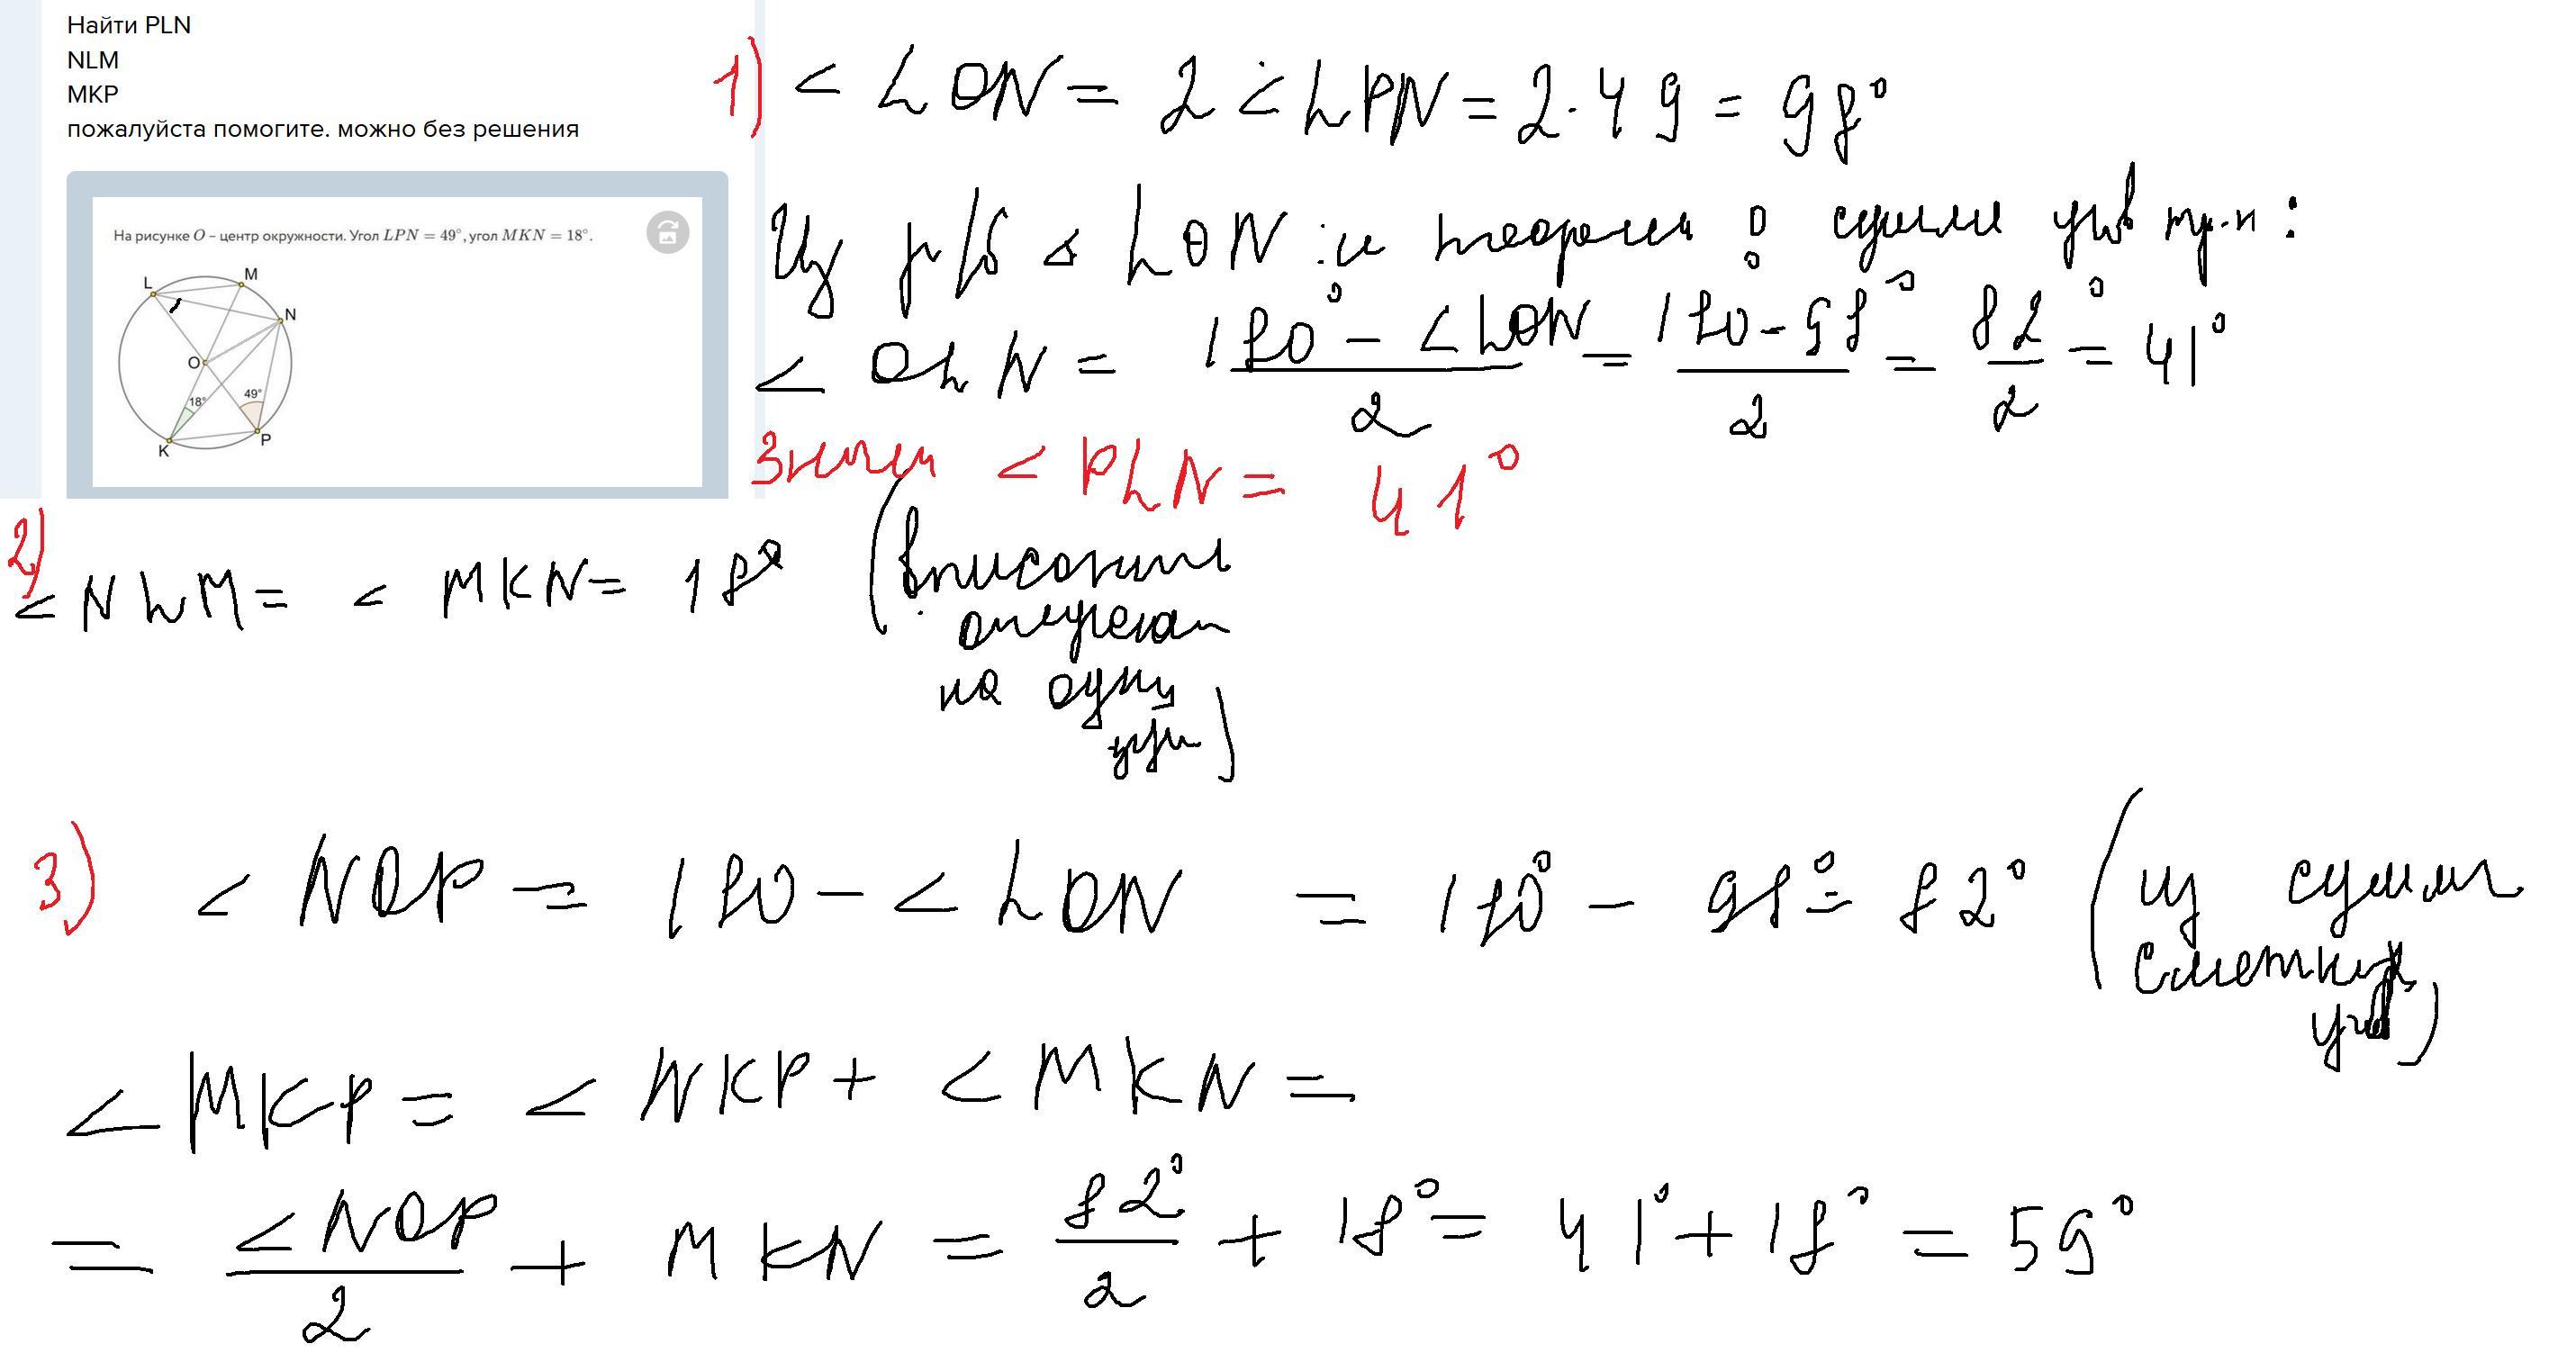 Найти PLN
NLM
MKP
пожалуйста помогите. можно без решения
На рисунке O – центр окружности. Угол LPN = 49°, угол MKN = 18°.
L
M
N
O
18°
49°
K
P
1) < LON = 2 < LPN = 2 · 49 = 98°
Из р/б Δ LON и теоремы о сумме ув тр-к :
< OLN = (180° - < LON)/2 = (180 - 98°)/2 = 82°/2 = 41°
Значит < PLN = 41°
2) < NLM = < MKN = 18° (вписанные
опирела
на одну
дугу)
3) < NOP = 180 - < LON = 180° - 98° = 82° (из суммы
смежных
угл)
< MKP = < NKP + < MKN =
= < NOP/2 + MKN = 82°/2 + 18° = 41° + 18° = 59°